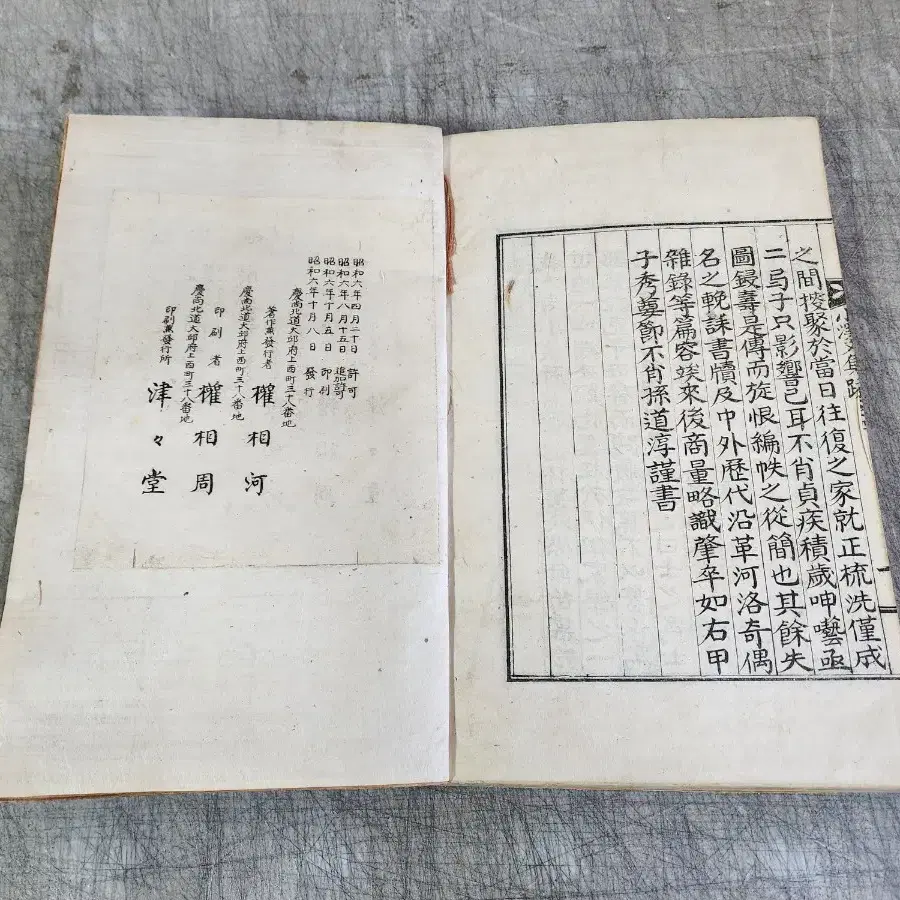 之間摭聚於當日往復之家就正梳洗僅成
二弓子只影響已耳不肖貞疾積歲呻囈亟
圖鋟壽是傳而旋恨編帙之從簡也其餘失
名之輓誄書牘及中外歷代沿革河洛奇偶
雜錄等篇容竢來後商量略識肇卒如右甲
子秀葽節不肖孫道淳謹書
昭和六年四月二十日 許可
昭和六年八月十五日 追加許可
昭和六年十月五日 印刷
昭和六年十月八日 發行
慶尚北道大邱府上西町三十八番地
著作兼發行者 權相河
慶尚北道大邱府上西町三十八番地
印刷者 權相周
慶尚北道大邱府上西町三十八番地
印刷兼發行所 津々堂